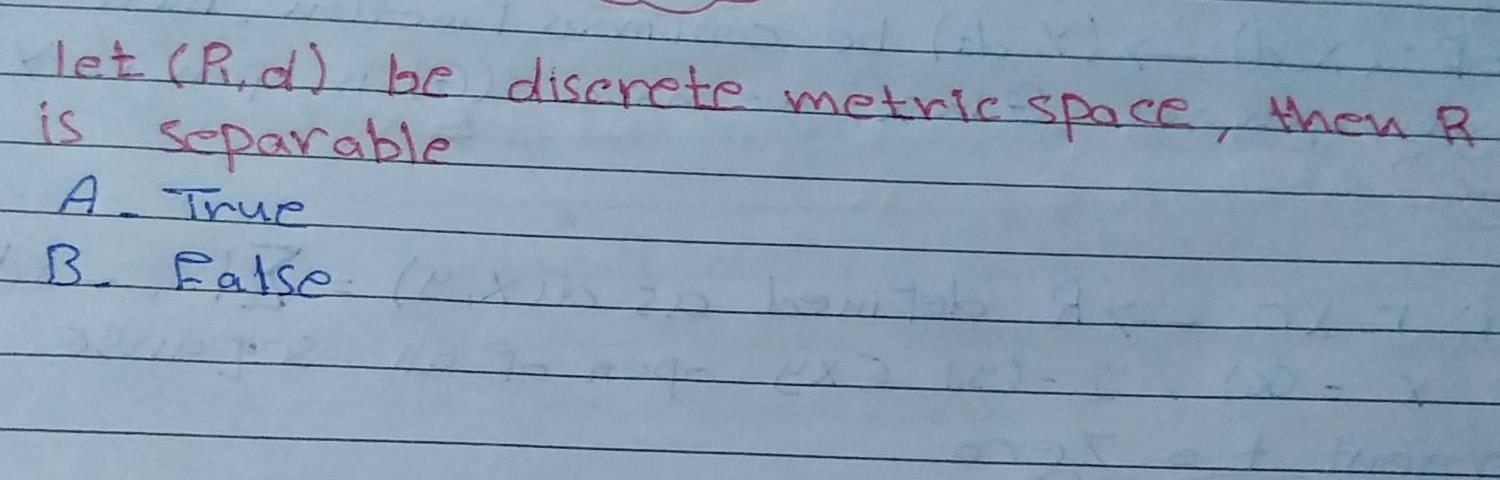 let (R,d) be discrete metric space, then R
is separable
A. True
B. False